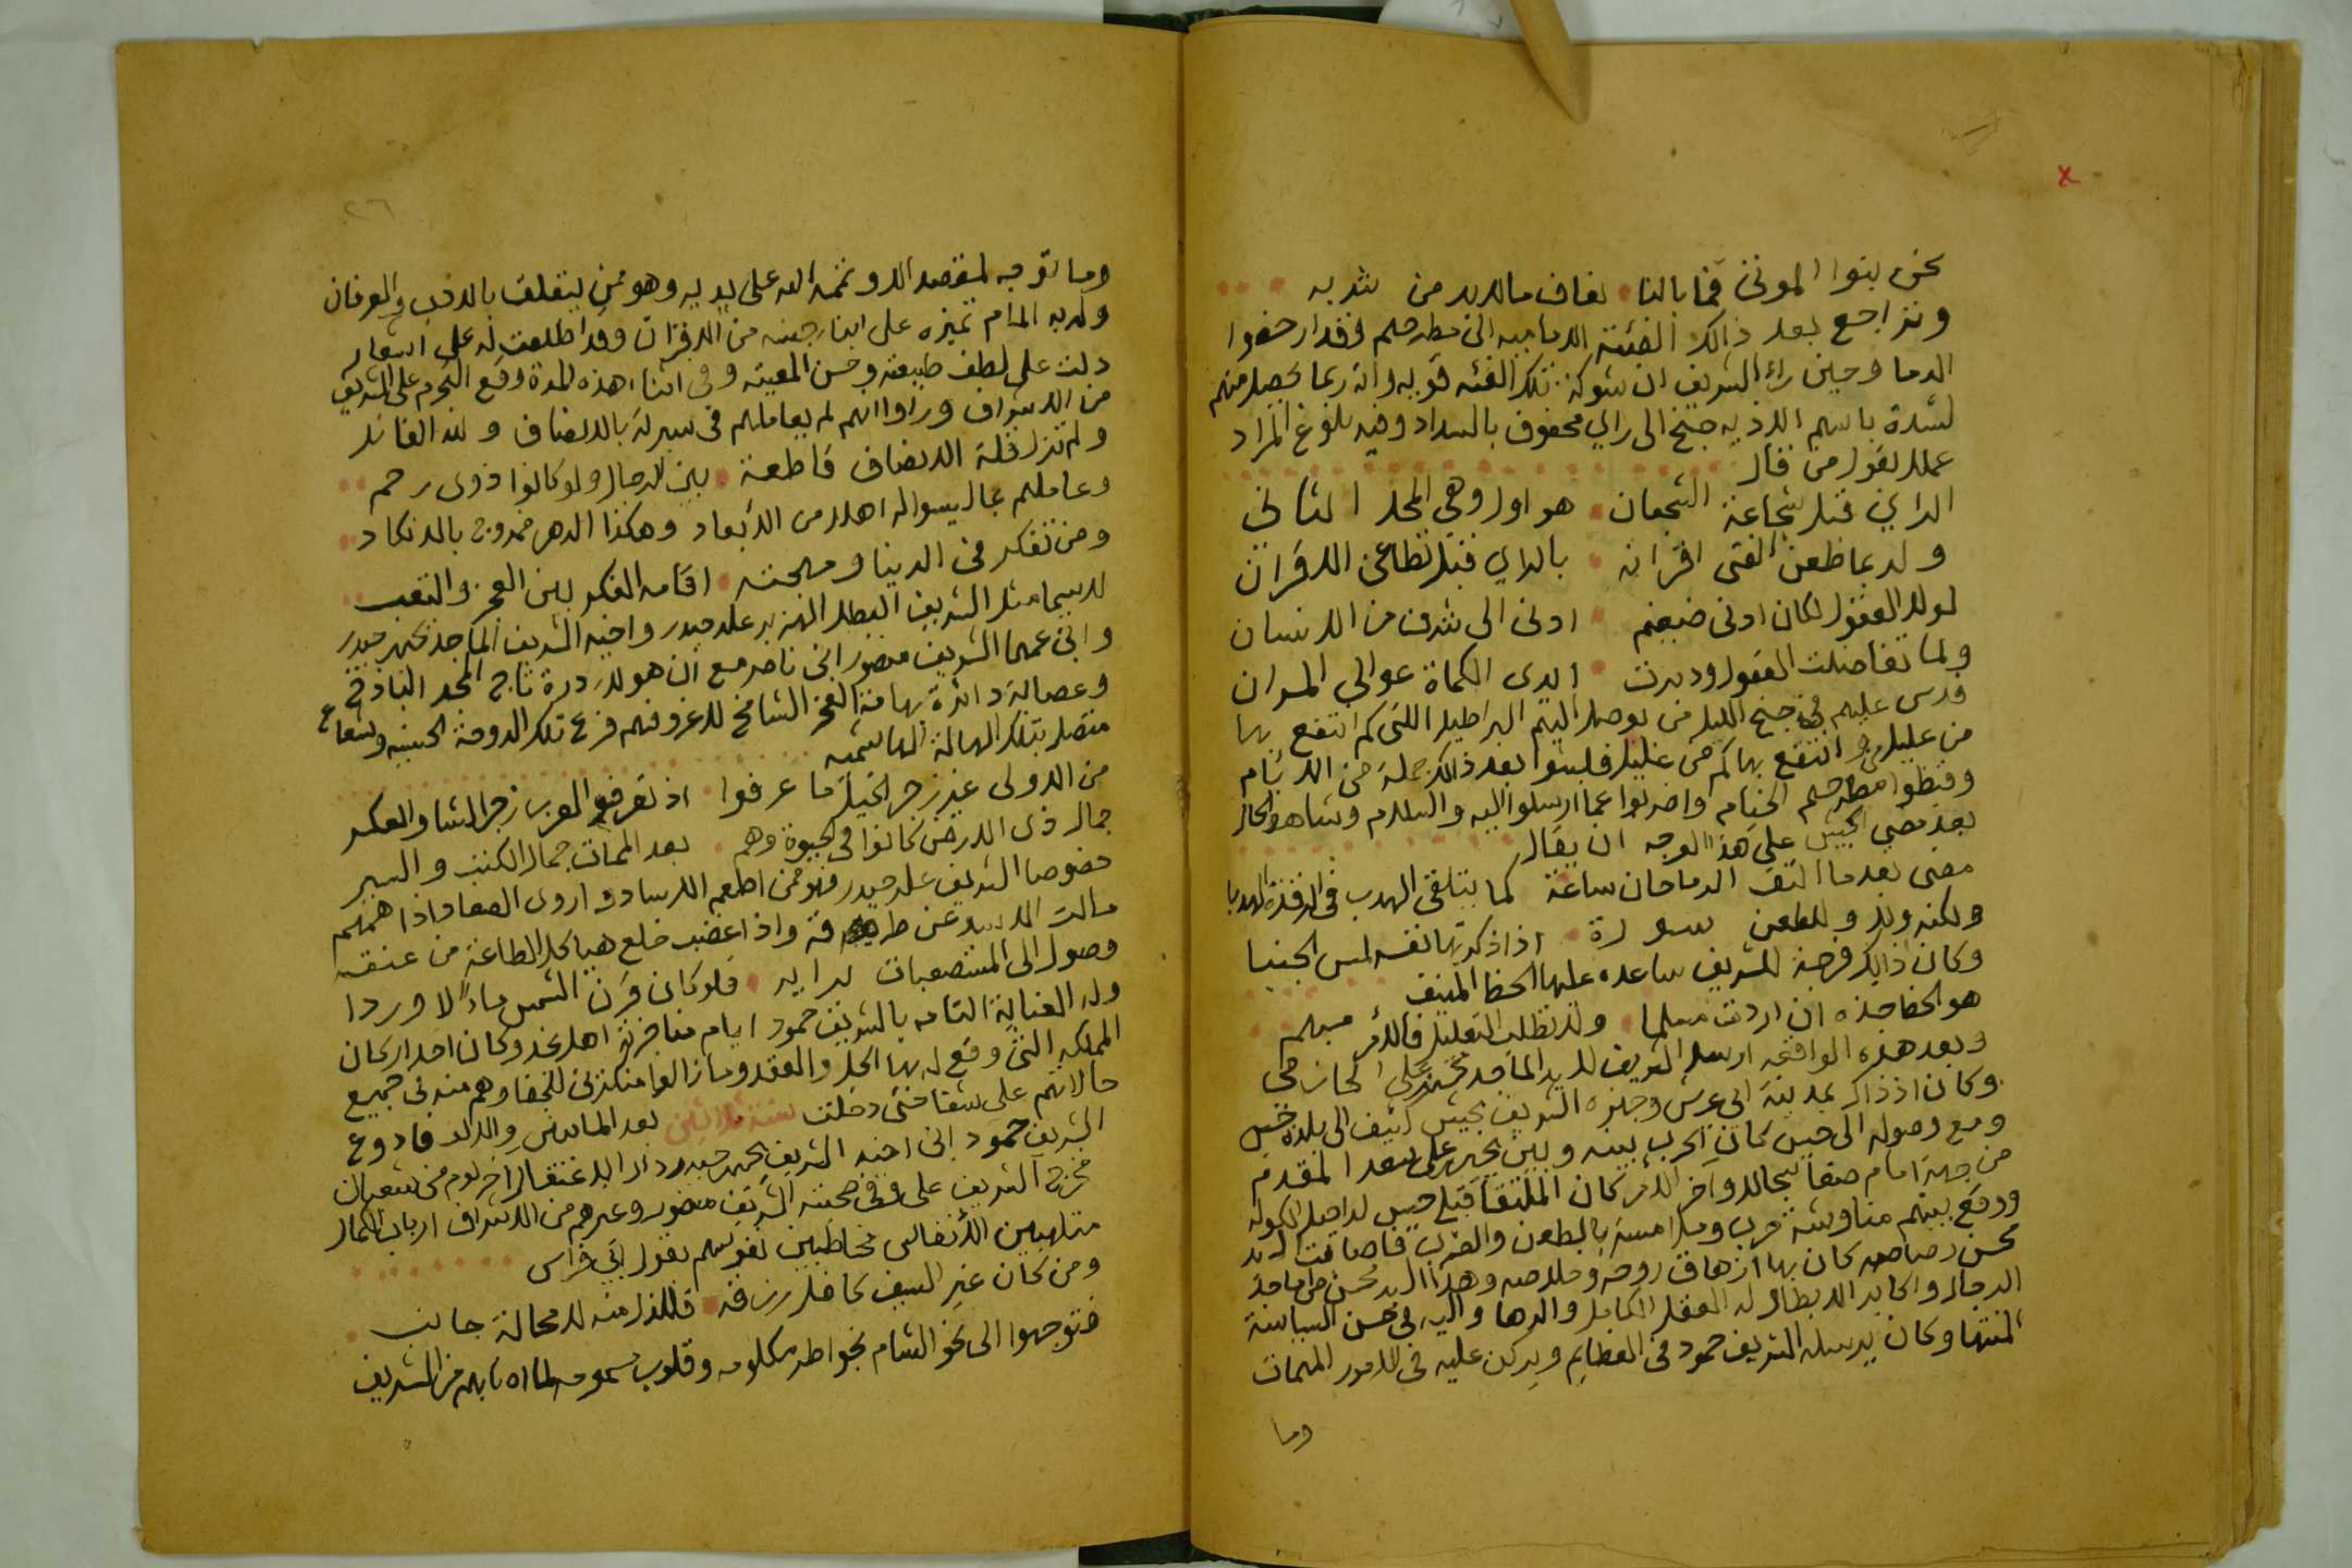 نحن بنوا الموتى فما بالنا نعاف مالابد من شربه
وتراجع بعد ذالك الفئة الى مطرحهم وقد ارخصوا
الدما وحين راى الشريف ان شوكة تلك الفئه قويه وانه ربما يحصل منهم
لشدة باسهم الاذيه جنح الى راي محفوف بالسداد وفيه بلوغ المراد
عملا بقول من قال
الراي قبل شجاعة الشجعان هو اول وهي المحل الثاني
ولربما طعن الفتى اقرانه بالراي قبل تطاعن الاقران
لولا العقول لكان ادنى ضيغم ادنى الى شرف من الانسان
ولما تفاضلت العقول ودبرت ايدى الكماة عوالي المران
فدس عليهم في جنح الليل من يوصل اليهم البراطيل اللتى كم انتفع بها
من عليل وانتقع بها كم من غليل فلبثوا بعد ذالك جملة من الايام
وقبضوا الخيام واضربوا عما ارسلوا اليه والسلام وشاهد الحال
بعد مضي الجيش على هذا الوجه ان يقال
مضى بعد ما التف الرماحان ساعة كما يتلقى الهدب في الرقدة الهدبا
ولكنه ولا وللطعن سورة اذا ذكرتها نفسه لمس الجنبا
وكان ذالك فرصة للشريف ساعده عليها الحظ المنيف
هو الحظ خذه ان اردت مسلما ولا تطلب التعليل فالامر مبهم
وبعد هذه الواقعه ارسل الشريف
وكان اذ ذاك بمدينة ابي عريش وجهزه الشريف بجيش كثيف الى بلده حيس
ومع وصوله الى حيس كان الحرب بينه وبين سعد المقدم
من جهة امام صنعا سجالا وآخر الامر كان الملتقا
ووقع بينهم مناوشة حرب وملامسة بالطعن والضرب فاصابت
محسن رصاصه كان بها ازهاق روحه
الرجال له العقل الكامل والدها في حسن السياسة
المنتها وكان يرسله الشريف حمود في العظايم ويركن عليه في الامور المهمات
وما
٢٦
وما توجه لمقصد الا وتممه الله على يديه وهو ممن يتعلق بالادب والعرفان
وله به المام تميزه على ابنا جنسه من الاقران وقد اطلعت له على اشعار
دلت على لطف طبيعته وحسن المعيته وفي اثناء هذه المدة وقع التجرم على الشريف
من الاشراف وراوا انهم لم يعاملهم في سيرته بالانصاف ولله القائل
ولم تزل قلة الانصاف قاطعة بين الرجال ولو كانوا ذوى رحم
وعاملهم بما ليسوا له اهلا من الابعاد وهكذا الدهر ممزوج بالانكاد
ومن تفكر في الدنيا ومهجته اقامه الفكر بين العجز والتعب
لاسيما مثل الشريف البطل الهزبر على حيدر واخيه الشريف الماجد حيدر
وابن عمهما الشريف منصور ابن ناصر مع ان هولا درة تاج المجد الباذخ
وعصابة دائرة بهامة الفخر الشامخ لاغرو فهم فرع تلك الدوحة الحسنيه وشعاع
متصل بتلك الهالة الهاشميه
من الاولى غير زجر الخيل ما عرفوا اذ تعرف العرب زجر الشا والعكر
جمال ذى الارض كانوا في الحيوة وهم بعد الممات جمال الكتب والسير
خصوصا الشريف على حيدر فهو ممن اطعم
مالت وإذا غضب خلع هيا كل الطاعة من عنقه
وصول الى المستصعبات برايه فلو كان قرن الشمس ماءً لاوردا
وله العناية التامه بالشريف حمود ايام مناجزة اهل نجد وكان احد اركان
المملكه التى وقع له بها الحل والعقد وما زالوا
حالاتهم على شقا حتى دخلت سنة ثلاثين بعد الماتين والالف فاودع
الشريف حمود ابن اخيه الشريف حيدر دار الاعتقال اخر يوم من شعبان
الشريف على وفي صحبته الشريف منصور وغيرهم من الاشراف ارباب الكمال
متلهبين الانفاس مخاطبين نفوسهم بقول ابي فراس
ومن كان غير السيف كافل رزقه فللذل منه لا محالة جانب
فتوجهوا الى نحو الشام بخواطر مكلومه وقلوب من الشريف